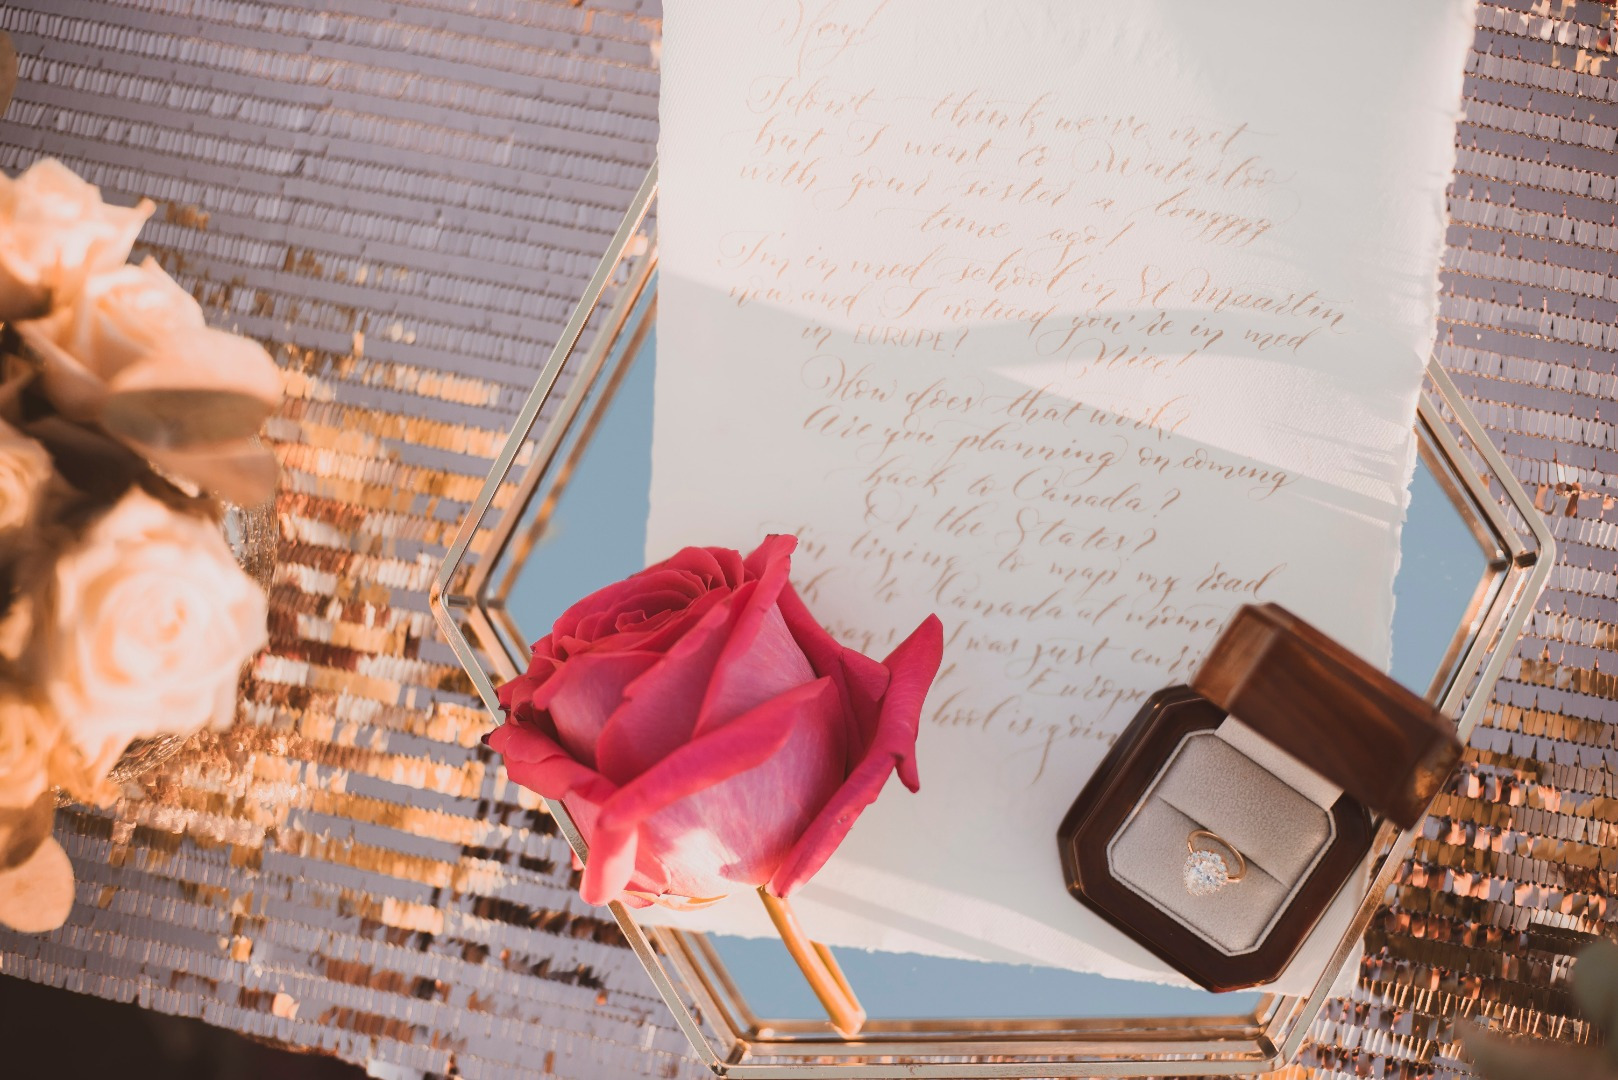 Hey!
I don't think we've met
but I went to Waterloo
with your sister a longggg
time ago!
I'm in med school in St Maartin
now and I noticed you're in med
in EUROPE! Nice!
How does that work?
Are you planning on coming
back to Canada?
Or the States?
I'm trying to map my road
to Canada at
I was just
Europe
is goin